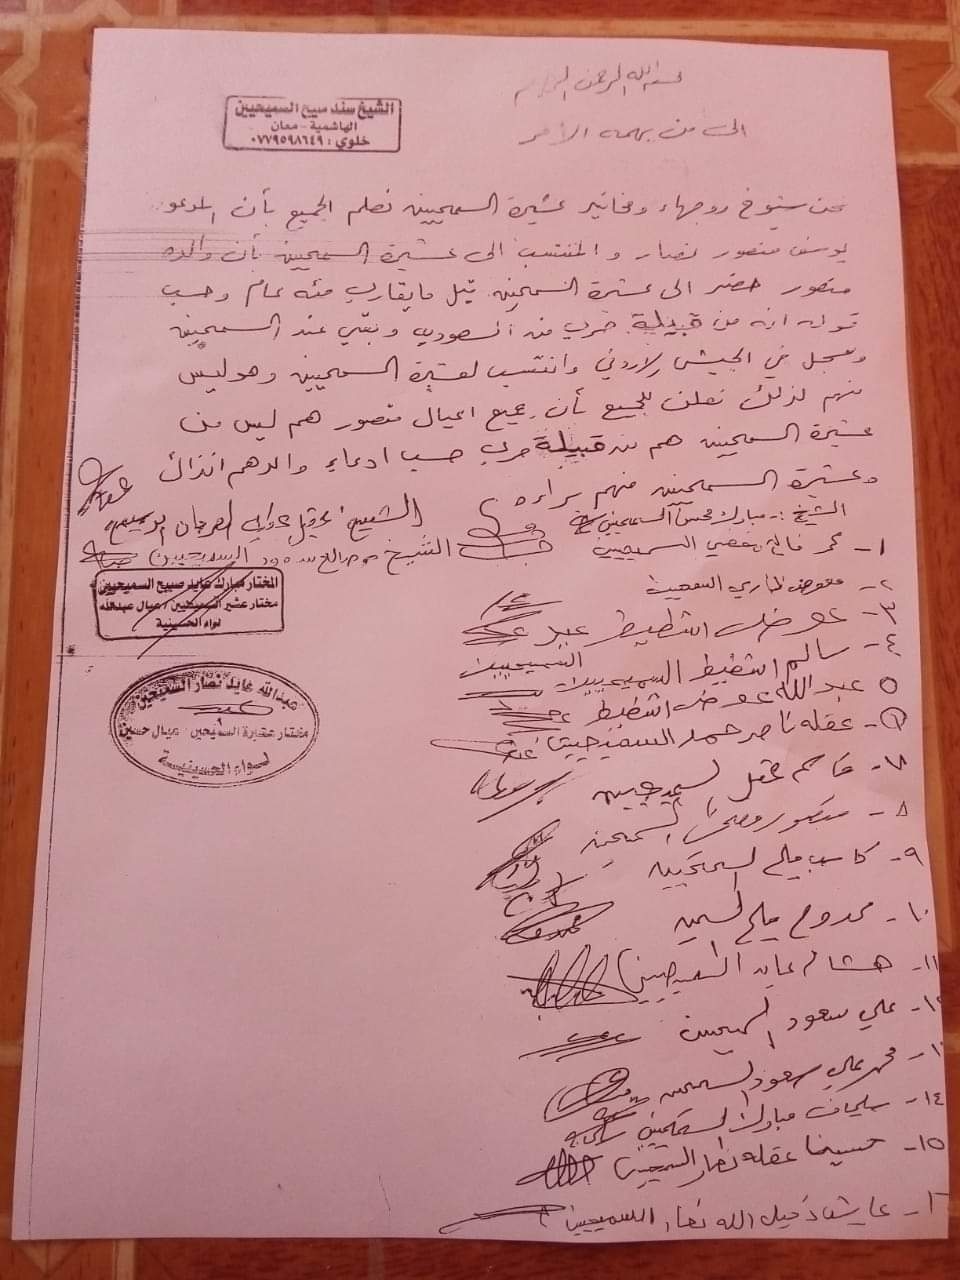 بسم الله الرحمن الرحيم
الشيخ سند صبيح السميحيين
الهاشمية - معان
خلوي : ٠٧٧٩٥٩٨٦٤٩
الى من يهمه الامر
نحن شيوخ ووجهاء ومخاتير عشيرة السميحيين نعلم الجميع بأن المدعو
يوسف منصور نصار والمنتسب الى عشيرة السميحيين بأن والده
منصور حضر الى عشيرة السميحيين قبل ما يقارب مئه عام وحسب
قوله انه من قبيلة حرب من السعودية وبقي عند السميحيين
وعمل في الجيش الاردني وانتسب لعشيرة السميحيين وهو ليس
منهم لذلك نعلن للجميع بأن جميع اعيال منصور هم ليس من
عشيرة السميحيين هم من قبيلة حرب حسب ادعاء والدهم انذاك
وعشيرة السميحيين منهم براءه
الشيخ
الشيخ :- مبارك محسن السميحيين
الشيخ صالح السميحيين
١- محمد السميحيين
المختار مبارك عايد صبيح السميحيين
مختار عشير السميحيين / عيال عبدالله
لواء الحسينية
٢- معوض السميحيين
٣- عوض اشطيط
٤- سالم اشطيط السميحيين
عبدالله عايد نصار السميحيين
مختار عشيرة السميحيين - عيال حسين
لواء الحسينية
٥- عبدالله عوض اشطيط
٦- عقله ناصر حمد السميحيين
٧- قاسم عقل السميحيين
٨- منصور السميحيين
٩- كاسب السميحيين
١٠- ممدوح
١١- هشام عايد السميحيين
١٢- علي سعود السميحيين
محمد علي سعود السميحيين
١٤- سليمان مبارك السميحيين
١٥- حسين عقله نصار السميحيين
عايش دخيل الله نصار السميحيين